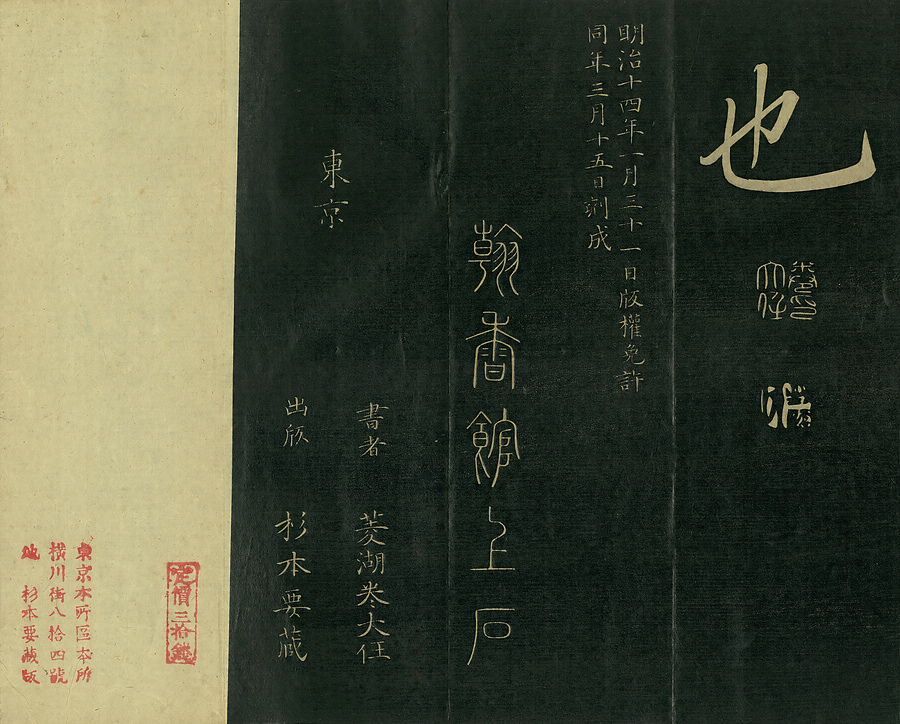 也
明治十四年一月三十一日版權免許
同年三月十五日刻成
翰香館上石
東京
書者 菱湖卷大任
出版 杉本要蔵
定價三拾錢
東京本所區本所
横川街八拾四號
地 杉本要蔵版